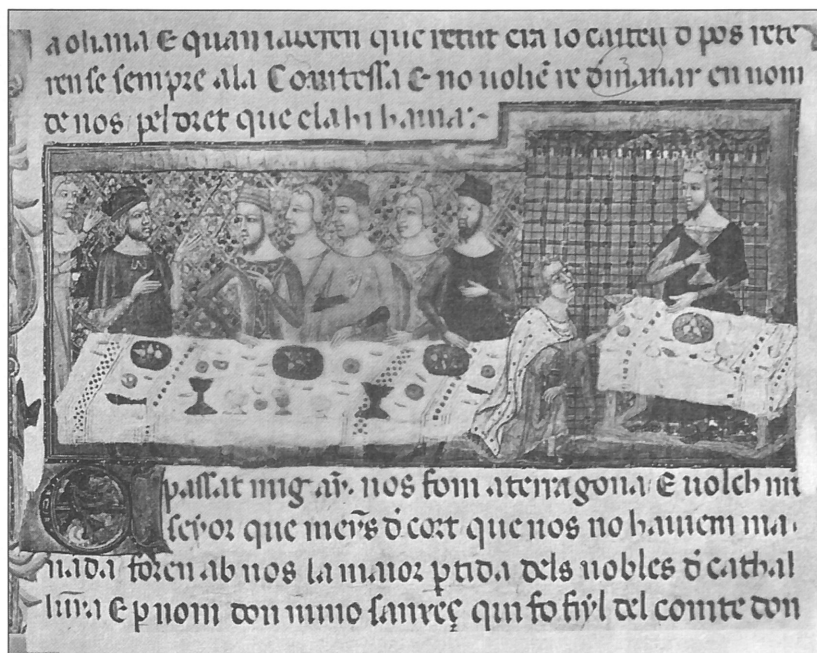 a oliana E quan saberen que retut era lo castell d pos rete
ren se sempre ala Comtessa E no uoliē re dmanar en nom
de nos pel dret que ela hi hauia:-
passat mig ay. nos fom aterragona E uolch
seyor que meys d cort que nos no hauiem ma
nada foren ab nos la maior ptida dels nobles d cathal
E p nom don nuno sanxeç qui fo fiyl del comte don